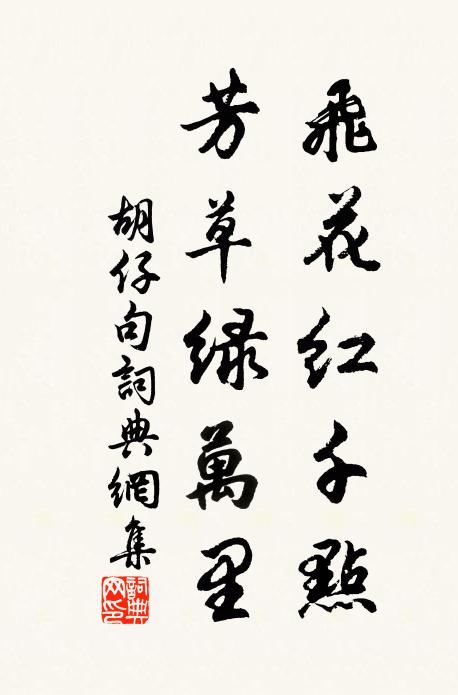 飛花紅千點
芳草綠萬里
胡仔句詞典網集
詞典网印